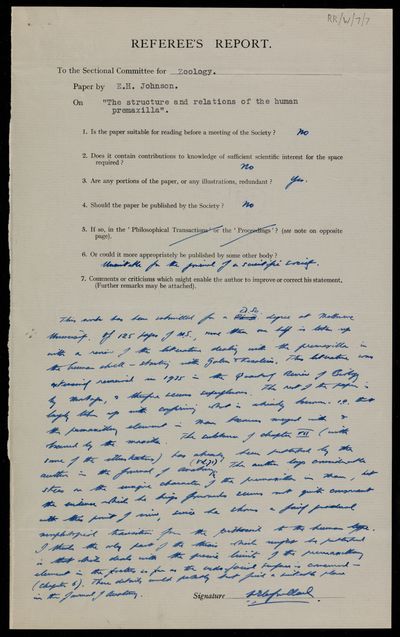 RR/W/7/7
REFEREE'S REPORT.
To the Sectional Committee for Zoology.
Paper by E.H. Johnson.
On "The structure and relations of the human
premaxilla".
1. Is the paper suitable for reading before a meeting of the Society ? No
2. Does it contain contributions to knowledge of sufficient scientific interest for the space
required ? No
3. Are any portions of the paper, or any illustrations, redundant ? Yes.
4. Should the paper be published by the Society ? No
5. If so, in the ' Philosophical Transactions ' or the ' Proceedings ' ? (see note on opposite
page).
6. Or could it more appropriately be published by some other body ?
Unsuitable for the journal of a scientific society.
7. Comments or criticisms which might enable the author to improve or correct his statement,
(Further remarks may be attached).
This work has been submitted for a D.Sc. degree at Melbourne
University. Of 125 pages of M.S., more than one half is taken up
with a review of the literature dealing with the premaxilla in
the human skull – starting with Galen & Vesalius. This literature was
reviewed in 1935 in the Quarterly Review of Biology
by & therefore seems superfluous. The rest of the paper is
largely taken up with what is already known. i.e. that
the premaxillary element in man becomes merged with &
by the maxilla. The substance of chapter VII (with
some of the illustrations) has already been published by the
author in the Journal of Anatomy. The author lays considerable
stress on the unique character of the premaxilla in man, but
the evidence which he brings forward seems not quite consonant
with this point of view, since he shows a fairly gradual
morphological transition from the to the human type.
I think the only part of the thesis which might be published
is that which deals with the precise limits of the premaxillary
element in the as far as the surface is concerned –
(Chapter 6). These details could probably find a suitable place
in the Journal of Anatomy.
Signature